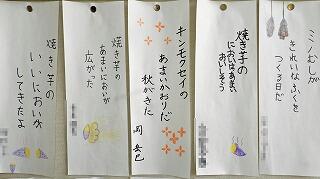 ミノむしが
きれいなふくを
つくる日だ
焼き芋の
においはあまい
おいしそう
キンモクセイの
あまいかおりだ
秋がきた
焼き芋の
あまいにおいが
広がった
焼き芋の
いいにおいが
してきたよ